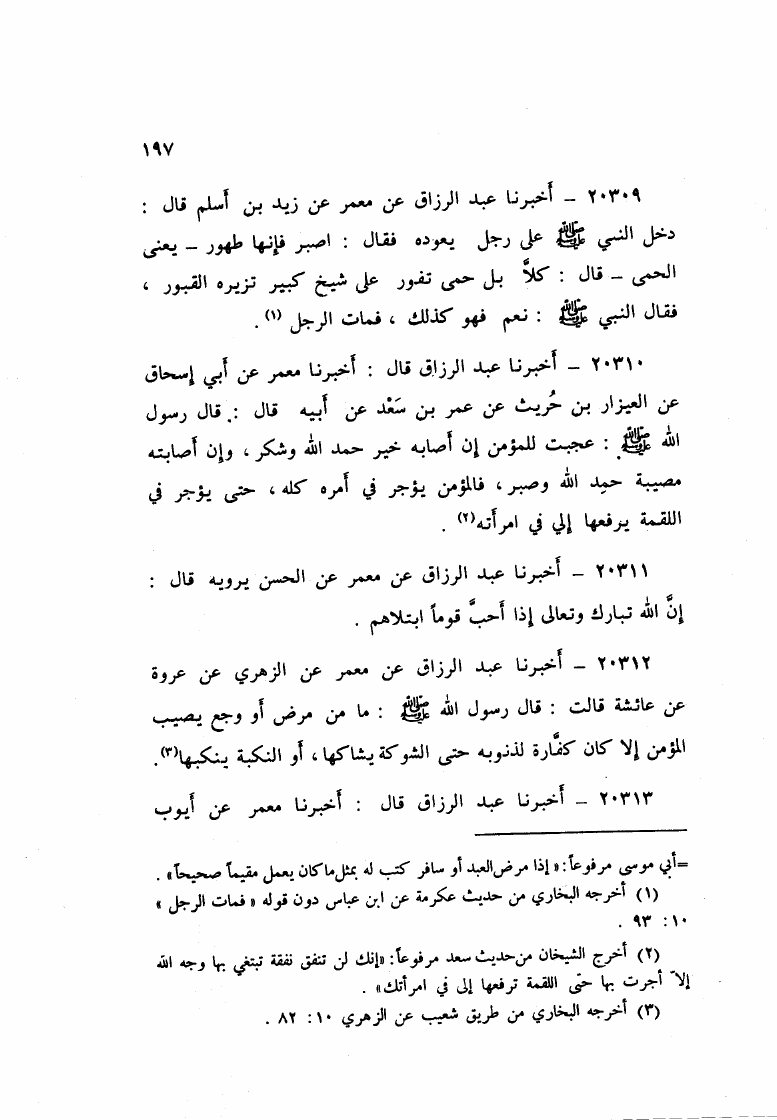 ١٩٧
٢٠٣٠٩ – أخبرنا عبد الرزاق عن معمر عن زيد بن أسلم قال :
دخل النبي ﷺ على رجل يعوده فقال : اصبر فإنها طهور – يعنى
الحمى – قال : كلاَّ بل حمى تفور على شيخ كبير تزيره القبور ،
فقال النبي ﷺ : نعم فهو كذلك ، فمات الرجل (١) .
٢٠٣١٠ – أخبرنا عبد الرزاق قال : أخبرنا معمر عن أبي إسحاق
عن العيزار بن حُريث عن عمر بن سَعْد عن أبيه قال : قال رسول
الله ﷺ : عجبت للمؤمن إن أصابه خير حمد الله وشكر ، وإن أصابته
مصيبة حمِد الله وصبر ، فالمؤمن يؤجر في أمره كله ، حتى يؤجر في
اللقمة يرفعها إلي في امرأته(٢) .
٢٠٣١١ – أخبرنا عبد الرزاق عن معمر عن الحسن يرويه قال :
إنَّ الله تبارك وتعالى إذا أحبَّ قوماً ابتلاهم .
٢٠٣١٢ – أخبرنا عبد الرزاق عن معمر عن الزهري عن عروة
عن عائشة قالت : قال رسول الله ﷺ : ما من مرض أو وجع يصيب
المؤمن إلا كان كفَّارة لذنوبه حتى الشوكة يشاكها ، أو النكبة ينكبها(٣).
٢٠٣١٣ – أخبرنا عبد الرزاق قال : أخبرنا معمر عن أيوب
=أبي موسى مرفوعاً: « إذا مرض العبد أو سافر كتب له بمثل ما كان يعمل مقيماً صحيحاً » .
(١) أخرجه البخاري من حديث عكرمة عن ابن عباس دون قوله « فمات الرجل »
١٠: ٩٣ .
(٢) أخرج الشيخان من حديث سعد مرفوعاً: «إنك لن تنفق نفقة تبتغي بها وجه الله
إلاّ أجرت بها حتى اللقمة ترفعها إلى في امرأتك» .
(٣) أخرجه البخاري من طريق شعيب عن الزهري ١٠: ٨٢ .